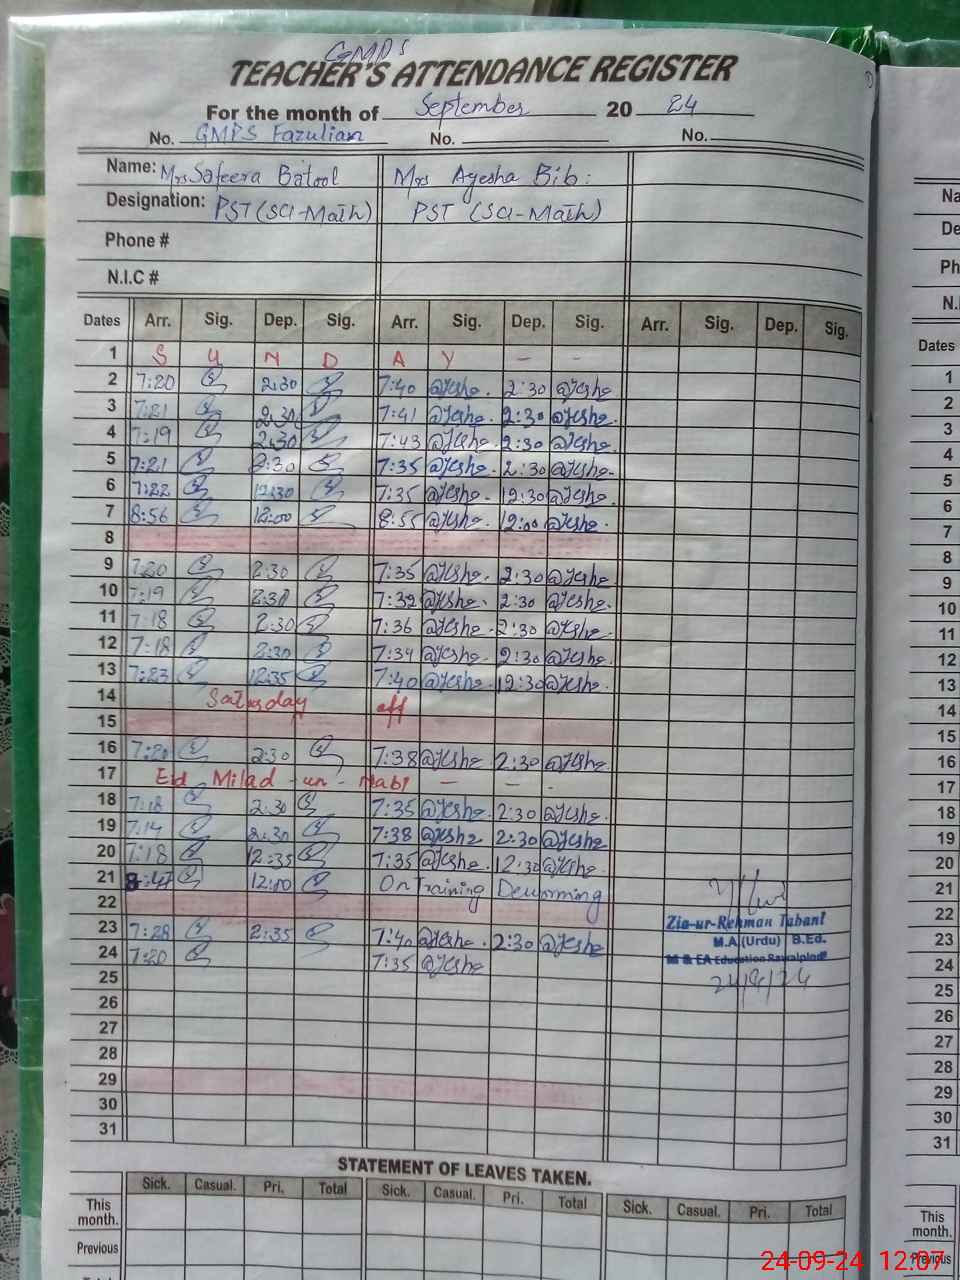 GMPS
TEACHER'S ATTENDANCE REGISTER
For the month of September 20 24
No. GMPS Fazulian No. No.
Name: Mrs Safeera Batool Mrs Ayesha Bib:
Designation: PST (SCI-Math) PST (SCI-Math)
Phone #
N.I.C #
Dates Arr. Sig. Dep. Sig. Arr. Sig. Dep. Sig. Arr. Sig. Dep. Sig.
1 S U N D A Y - -
2 7:20 2:30 7:40 2:30
3 7:21 2:30 7:41 2:30
4 7:19 2:30 7:43 2:30
5 7:21 2:30 7:35 2:30
6 7:22 12:30 7:35 12:30
7 8:56 12:00 8:55 12:00
8
9 7:20 2:30 7:35 2:30
10 7:19 2:30 7:32 2:30
11 7:18 2:30 7:36 2:30
12 7:18 2:30 7:34 2:30
13 7:23 12:35 7:40 12:30
14 Saturday off
15
16 7:20 2:30 7:38 2:30
17 Eid Milad - un - Nabi - - -
18 7:18 2:30 7:35 2:30
19 7:14 2:30 7:38 2:30
20 7:18 12:35 7:35 12:30
21 12:00 On Training Deworming
22
23 7:28 2:35 7:40 2:30
24 7:20 7:35
25
26
27
28
29
30
31
Zia-ur-Rehman Tabani
M.A (Urdu) B.Ed.
M & EA Education Rawalpindi
24/9/24
STATEMENT OF LEAVES TAKEN.
Sick. Casual. Pri. Total Sick. Casual. Pri. Total Sick. Casual. Pri. Total
This month.
Previous
Na
De
Ph
N.I
Dates
1
2
3
4
5
6
7
8
9
10
11
12
13
14
15
16
17
18
19
20
21
22
23
24
25
26
27
28
29
30
31
This month.
Previous
24-09-24 12:07